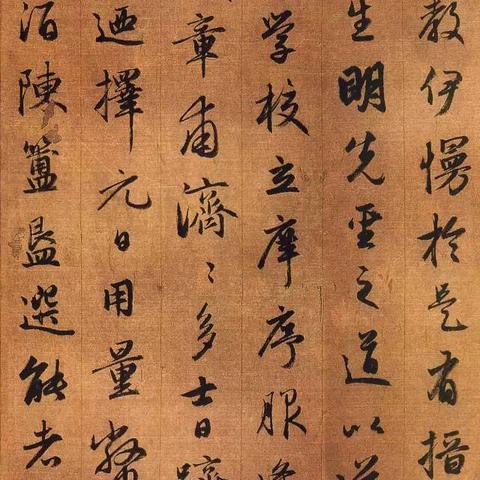 教伊於是有搢
生明先聖之道以
学校立庠序服逢
章甫濟〻多士日躋
迺擇元日用量幣
陳簠簋選能者